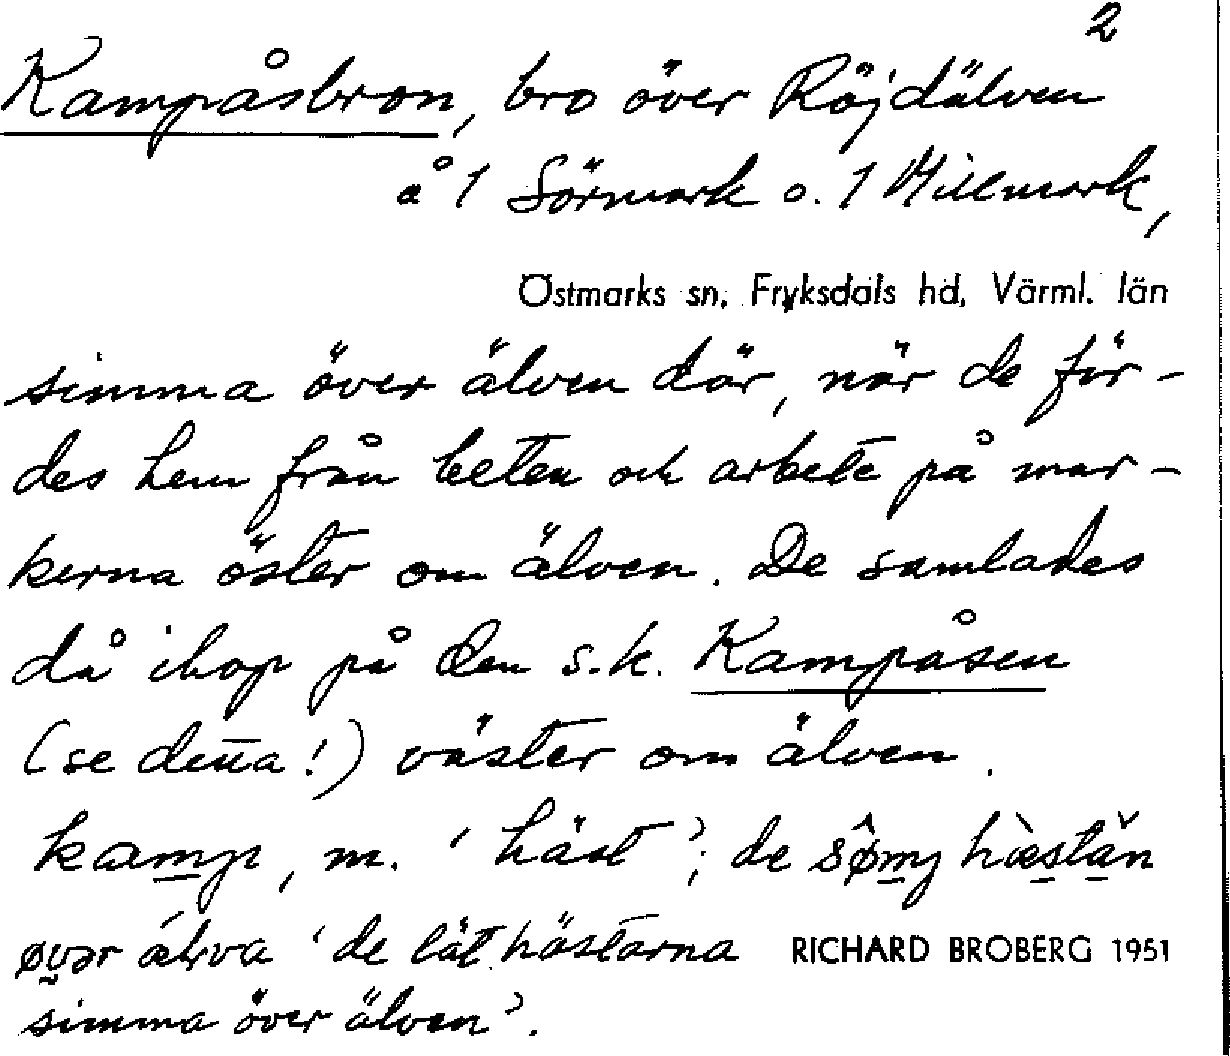 2
Kampåsbron, bro över Röjdälven
å 1 Sörmark o. 1 Millmark,
Östmarks sn, Fryksdals hd, Värml. län
simma över älven där, när de för-
des hem från beten och arbete på mar-
kerna öster om älven. De samlades
då ihop på den s.k. Kampåsen
(se detta!) väster om älven.
kamp, m. 'häst'; de
'de lät hästarna
RICHARD BROBERG 1951
simma över älven'.